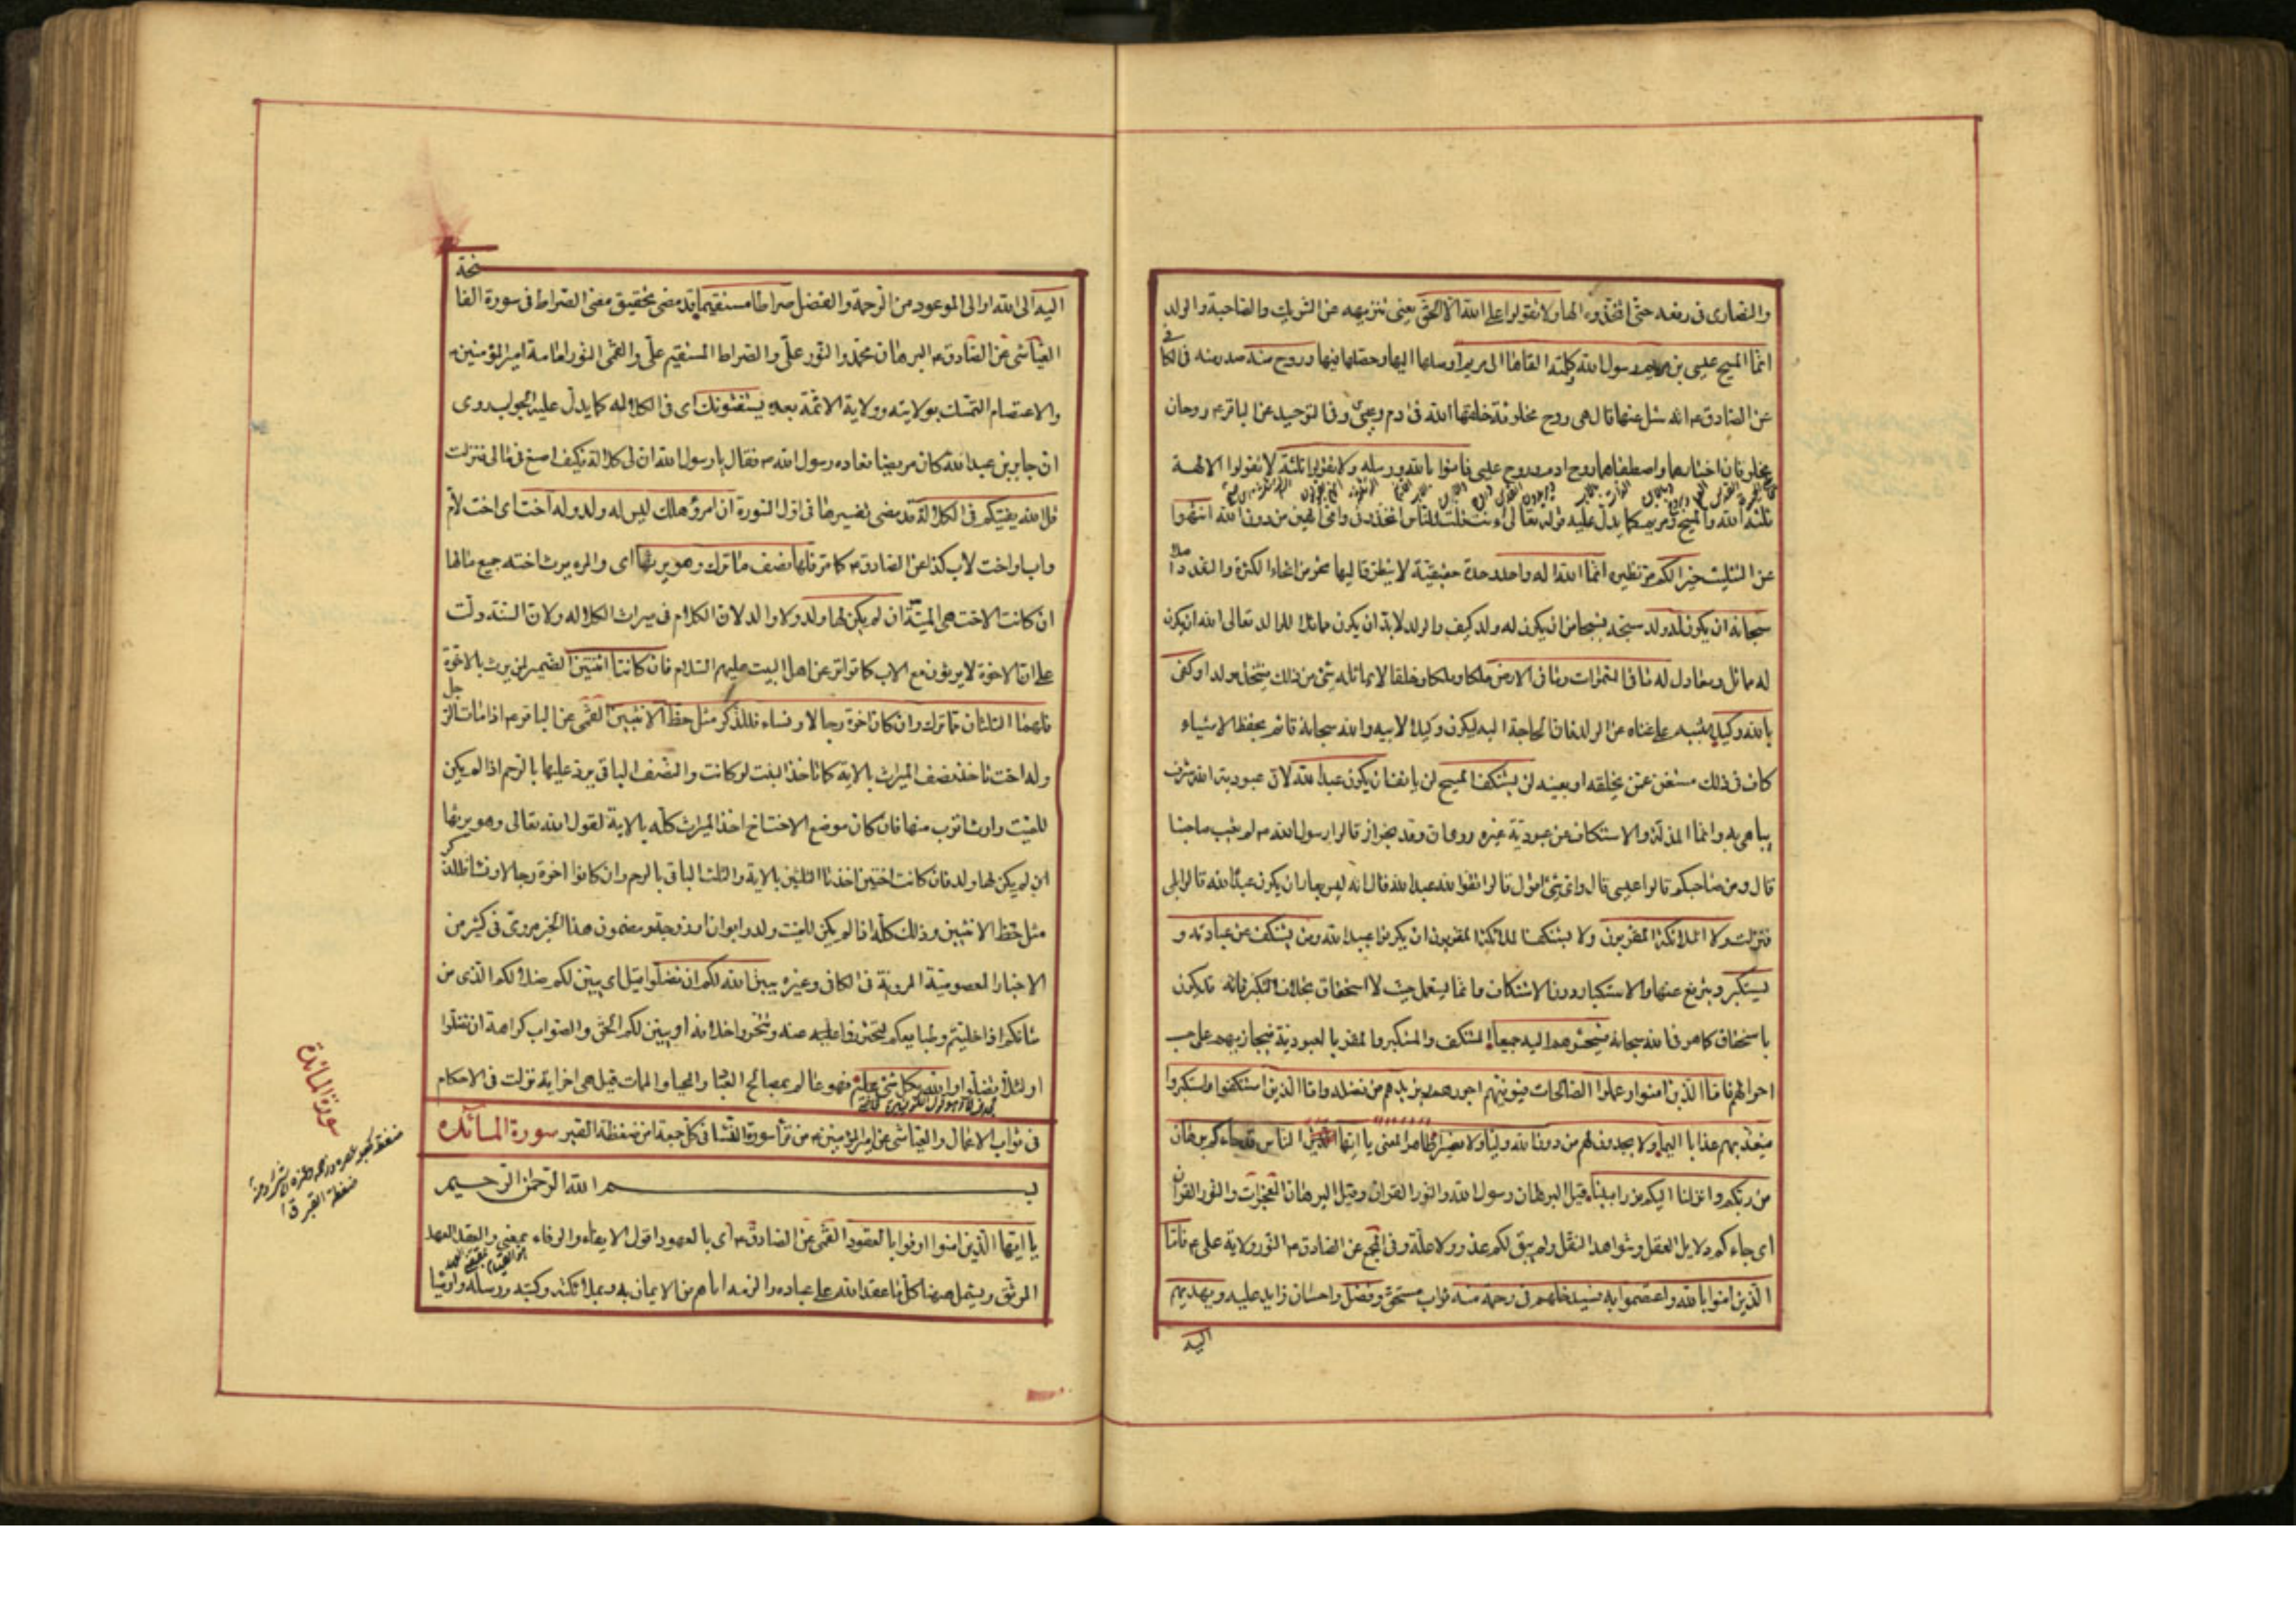 والنصارى فى رفعه حتى اتخذوه الها ولا تقولوا على الله الا الحق يعنى تنزيهه عن الشريك والصاحبة والولد
انما المسيح عيسى بن مريم رسول الله وكلمته القاها الى مريم اوصلها اليها وحصلها فيها وروح منه صدرت منه فى الكافى
عن الصادق ع انه سئل عنها قال هى روح مخلوقة خلقها الله فى ادم وعيسى وفى التوحيد عن الباقر ع روحان
مخلوقان اختارهما واصطفاهما روح ادم وروح عيسى فامنوا بالله ورسله ولا تقولوا ثلثة لا تقولوا الالهة
ثلثة الله والمسيح ومريم كما يدل عليه قوله تعالى ءانت قلت للناس اتخذونى وامى الهين من دون الله انتهوا
عن التثليث خيرا لكم مر نظيره انما الله اله واحد وحدة حقيقية لا يتطرق اليها نحو من انحاء الكثرة والتعدد اصلا
سبحانه ان يكون له ولد سبحه تسبيحا من ان يكون له ولد كيف والولد لابد ان يكون مماثلا للوالد تعالى الله ان يكون
له مماثل ومعادل له ما فى السموات وما فى الارض ملكا وملكا وخلقا لا يماثله شئ من ذلك فيتخذه ولدا وكفى
بالله وكيلا تنبيه على غناه عن الولد فان الحاجة اليه ليكون وكيلا لابيه والله سبحانه قائم بحفظ الاشياء
كاف فى ذلك مستغن عمن يخلفه او يعينه لن يستنكف المسيح لن يانف ان يكون عبدا لله لان عبودية الله شرف
يباهى به وانما المذلة والاستنكاف عن عبودية غيره روى ان وفد نجران قالوا لرسول الله ص لم تعيب صاحبنا
قال ومن صاحبكم قالوا عيسى قال واى شئ اقول قالوا تقول انه عبد الله قال انه ليس بعار ان يكون عبدا لله قالوا بلى
فنزلت ولا الملائكة المقربون ولا يستنكف الملائكة المقربون ان يكونوا عبيدا لله ومن يستنكف عن عبادته و
يستكبر ويترفع عنها والاستكبار دون الاستنكاف وانما يستعمل حيث لا استحقاق بخلاف التكبر فانه قد يكون
باستحقاق كما هو فى الله سبحانه فسيحشرهم اليه جميعا المستنكف والمستكبر والمقر بالعبودية فيجازيهم على حسب
احوالهم فاما الذين امنوا وعملوا الصالحات فيوفيهم اجورهم ويزيدهم من فضله واما الذين استنكفوا واستكبروا
فيعذبهم عذابا اليما ولا يجدون لهم من دون الله وليا ولا نصيرا ظاهر المعنى يا ايها الناس قد جاءكم برهان
من ربكم وانزلنا اليكم نورا مبينا قيل البرهان رسول الله والنور القران وقيل البرهان المعجزات والنور القران
اى جاءكم دلايل العقل وشواهد النقل ولم يبق لكم عذر ولا علة وفى المجمع عن الصادق ع النور ولاية على ع فاما
الذين امنوا بالله واعتصموا به فسيدخلهم فى رحمة منه ثواب مستحق وفضل واحسان زايد عليه ويهديهم
اليه
اليه الى الله او الى الموعود من الرحمة والفضل صراطا مستقيما قد مضى تحقيق معنى الصراط فى سورة الفاتحة
العياشى عن الصادق ع البرهان محمد والنور على والصراط المستقيم على والقمى النور امامة امير المؤمنين ع
والاعتصام التمسك بولايته وولاية الائمة بعده يستفتونك اى فى الكلالة كما يدل عليه الجواب روى
ان جابر بن عبد الله كان مريضا فعاده رسول الله ص فقال يا رسول الله ان لى كلالة فكيف اصنع فى مالى فنزلت
قل الله يفتيكم فى الكلالة قد مضى تفسيرها فى اول السورة ان امرؤ هلك ليس له ولد وله اخت اى اخت لأم
واب او اخت لأب كذا عن الصادق ع كما مر فلها نصف ما ترك وهو يرثها اى والمرء يرث اخته جميع مالها
ان كانت الاخت هى الميتة ان لم يكن لها ولد ولا والد لان الكلام فى ميراث الكلالة ولان السنة دلت
على ان الاخوة لا يرثون مع الاب كما تواتر عن اهل البيت عليهم السلام فان كانتا اثنتين الضمير لمن يرث بالاخوة
فلهما الثلثان مما ترك وان كان اخوة رجالا ونساء فللذكر مثل حظ الانثيين القمى عن الباقر ع اذا مات الرجل
وله اخت تاخذ نصف الميراث بالاية كما تاخذ البنت لو كانت والنصف الباقى يرد عليها بالرحم اذا لم يكن
للميت وارث اقرب منها فان كان موضع الاخت اخ اخذ الميراث كله بالاية لقول الله تعالى وهو يرثها
ان لم يكن لها ولد فان كانت اختين اخذتا الثلثين بالاية والثلث الباقى بالرحم وان كانوا اخوة رجالا ونساء فللذكر
مثل حظ الانثيين وذلك كله اذا لم يكن للميت ولد وابوان او زوجة ومضمون هذا الخبر مروى فى كثير من
الاخبار المعصومية المروية فى الكافى وغيره يبين الله لكم ان تضلوا قيل اى يبين لكم ضلالكم الذى من
شانكم اذا خليتم وطباعكم لتحترزوا عنه وتتحروا خلافه او يبين لكم الحق والصواب كراهة ان تضلوا
او لئلا تضلوا والله بكل شئ عليم فهو عالم بمصالح العباد والمحيا والممات قيل هى اخر اية نزلت فى الاحكام
فى ثواب الاعمال والعياشى عن امير المؤمنين ع من قرأ سورة النساء فى كل جمعة امن من ضغطة القبر سورة المائده
بسم الله الرحمن الرحيم
يا ايها الذين امنوا اوفوا بالعقود القمى عن الصادق ع اى بالعهود اقول الايفاء والوفاء بمعنى والعقد العهد
الموثق ويشمل هيهنا كل ما عقد الله على عباده والزمه اياهم من الايمان به وبملائكته وكتبه ورسله واوصيا
سورة المائدة
ضغطة القبر ق